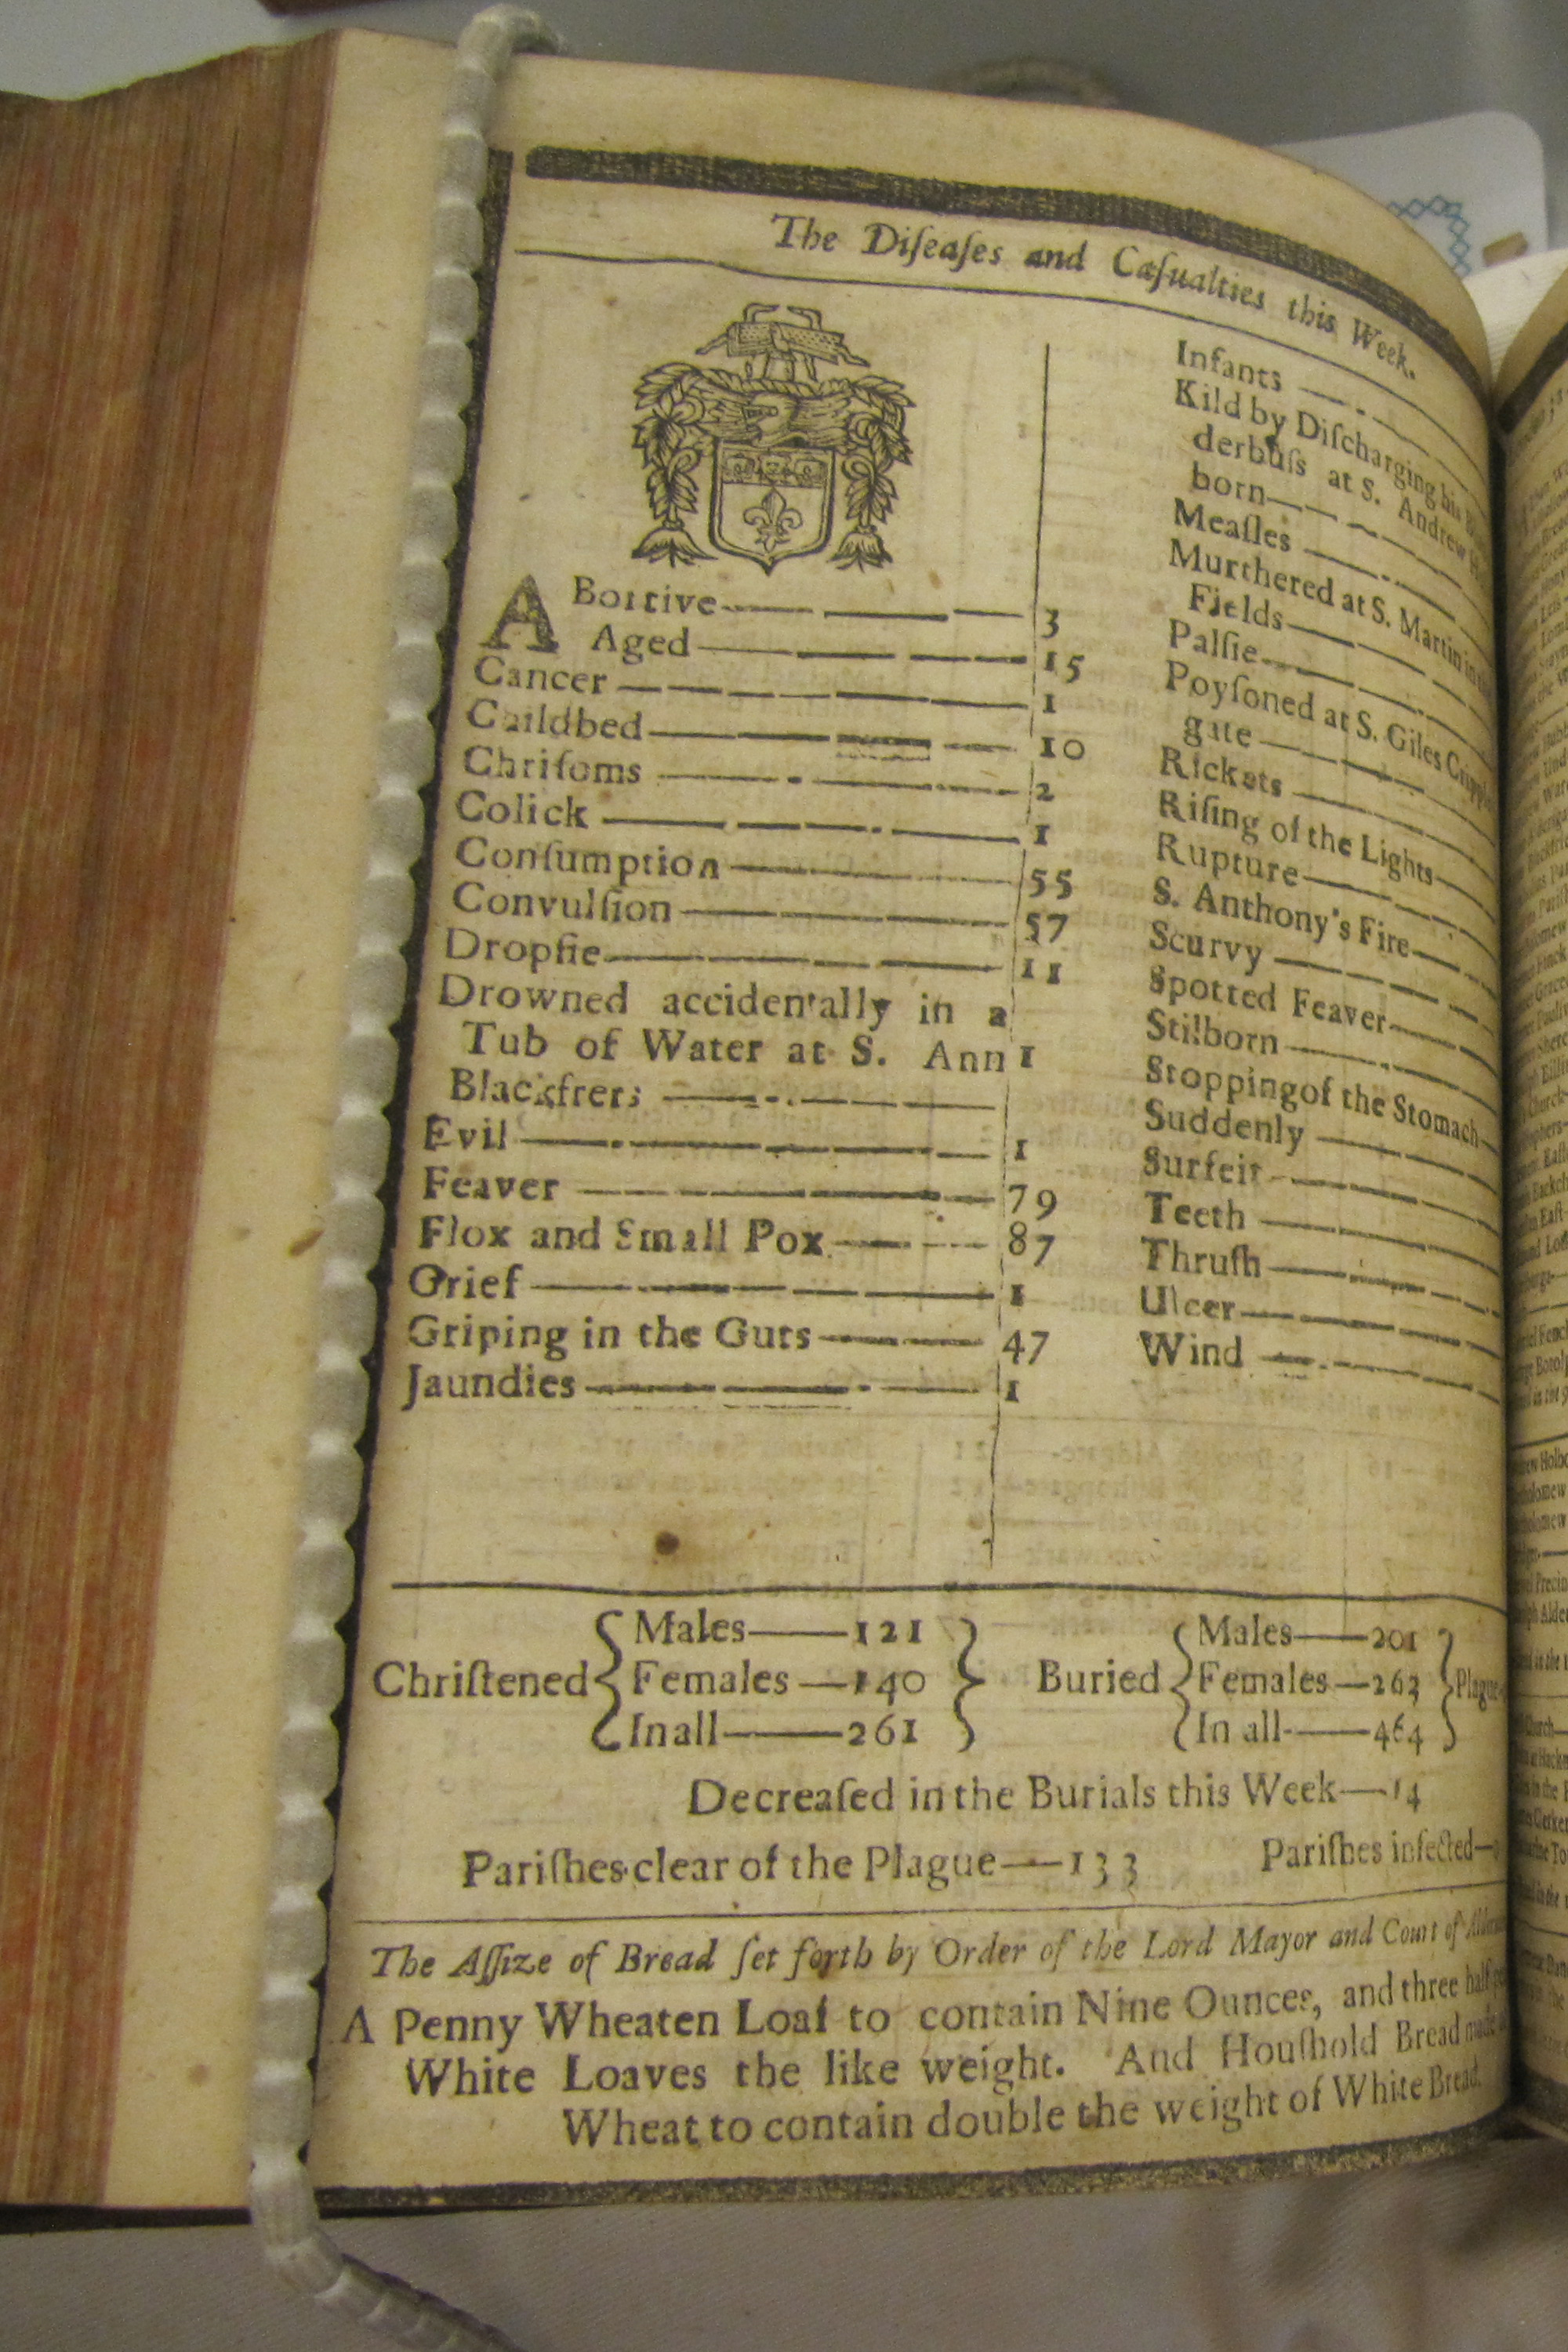 The Diſeaſes and Caſualties this Week.
ABortive 3
Aged 15
Cancer 1
Childbed 10
Chriſoms 2
Colick 1
Conſumption 55
Convulſion 57
Dropſie 11
Drowned accidentally in a
Tub of Water at S. Ann 1
Blackfrers
Evil 1
Feaver 79
Flox and Small Pox 87
Grief 1
Griping in the Guts 47
Jaundies 1
Infants
Kild by Diſcharging his
derbuſs at S. Andrew
born
Meaſles
Murthered at S. Martin in
Fields
Palſie
Poyſoned at S. Giles Cripple
gate
Rickets
Riſing of the Lights
Rupture
S. Anthony's Fire
Scurvy
Spotted Feaver
Stilborn
Stopping of the Stomach
Suddenly
Surfeit
Teeth
Thruſh
Ulcer
Wind
Chriſtened { Males 121 Females 140 In all 261 }
Buried { Males 201 Females 263 In all 464 } Plague
Decreaſed in the Burials this Week 14
Pariſhes clear of the Plague 133 Pariſhes infected
The Aſſize of Bread ſet forth by Order of the Lord Mayor and Court of
A Penny Wheaten Loaf to contain Nine Ounces, and three half
White Loaves the like weight. And Houſhold Bread made
Wheat to contain double the weight of White Bread.